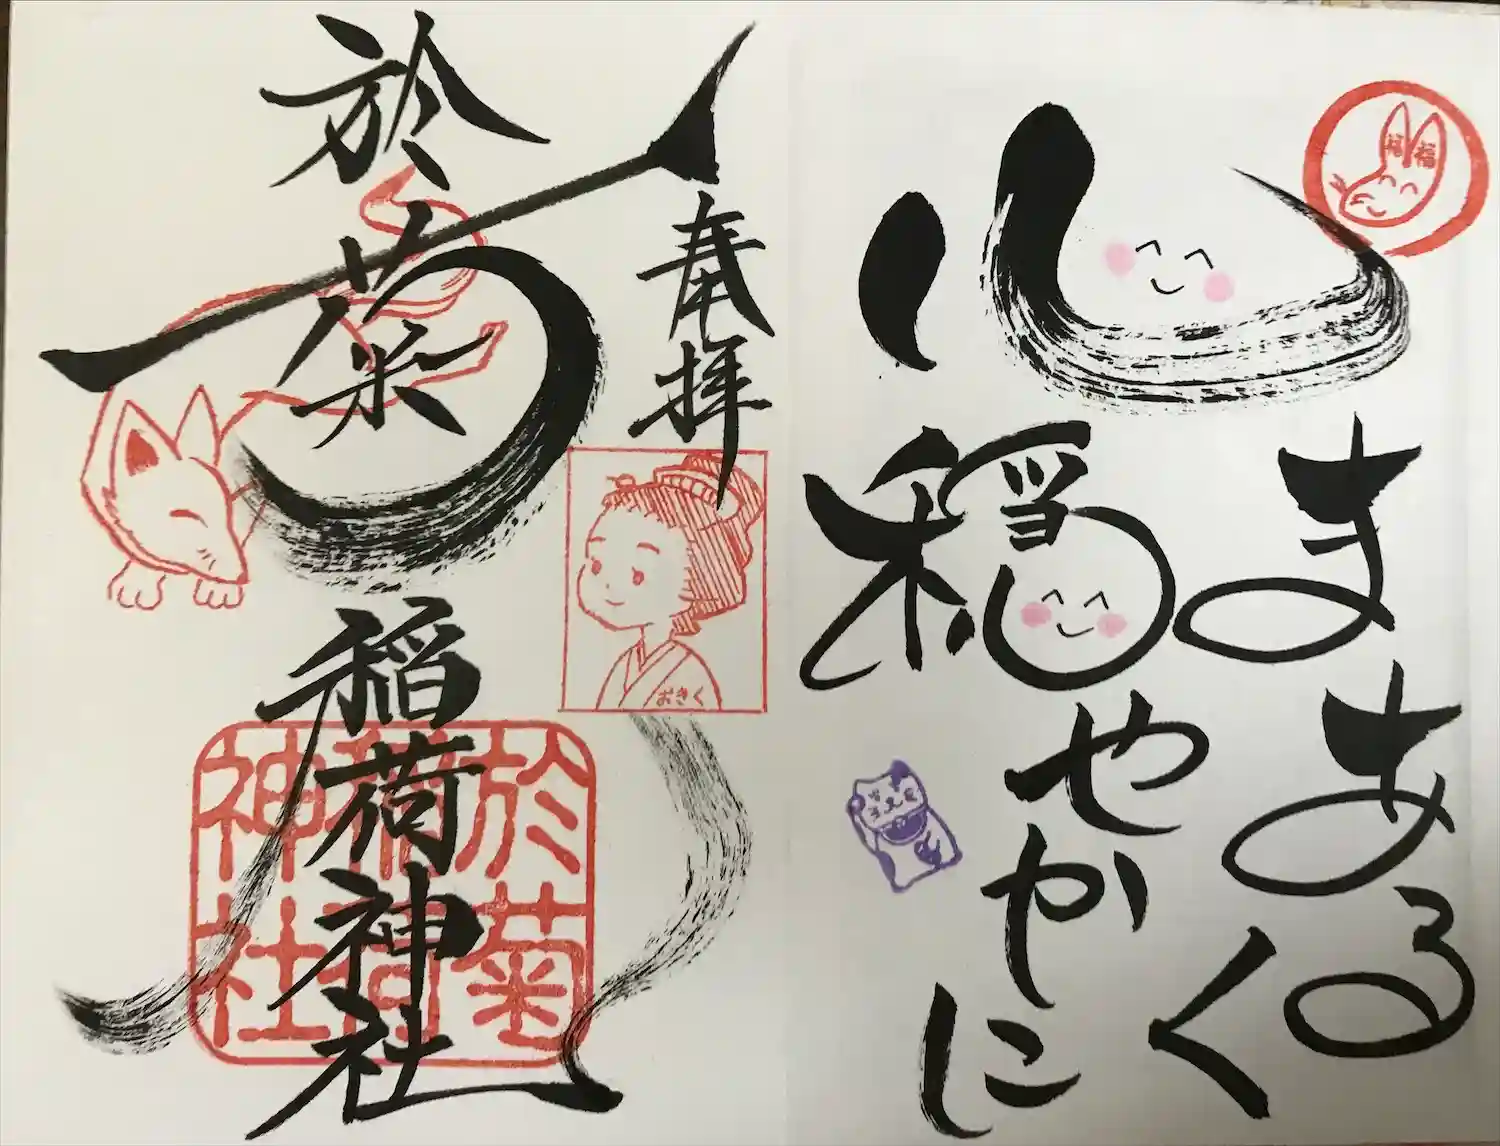 福 福
心
まあるく
穏やかに
奉拝
おきく
於菊稲荷神社
於菊
稲荷
神社